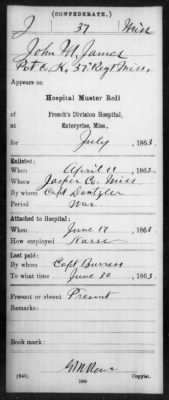 (CONFEDERATE.)
J 37 Miss
John M. James
Pvt Co. K, 37 Regt Miss.
Appears on
Hospital Muster Roll
of
French's Division Hospital,
at Enterprise, Miss.,
for July, 1863.
Enlisted:
When April 11, 1862.
Where Jasper Co. Miss
By whom Capt Dantzler
Period War
Attached to Hospital:
When June 17, 1863
How employed Nurse
Last paid:
By whom Capt Burress
To what time June 30, 1863.
Present or absent Present
Remarks:
Book mark:
Copyist.